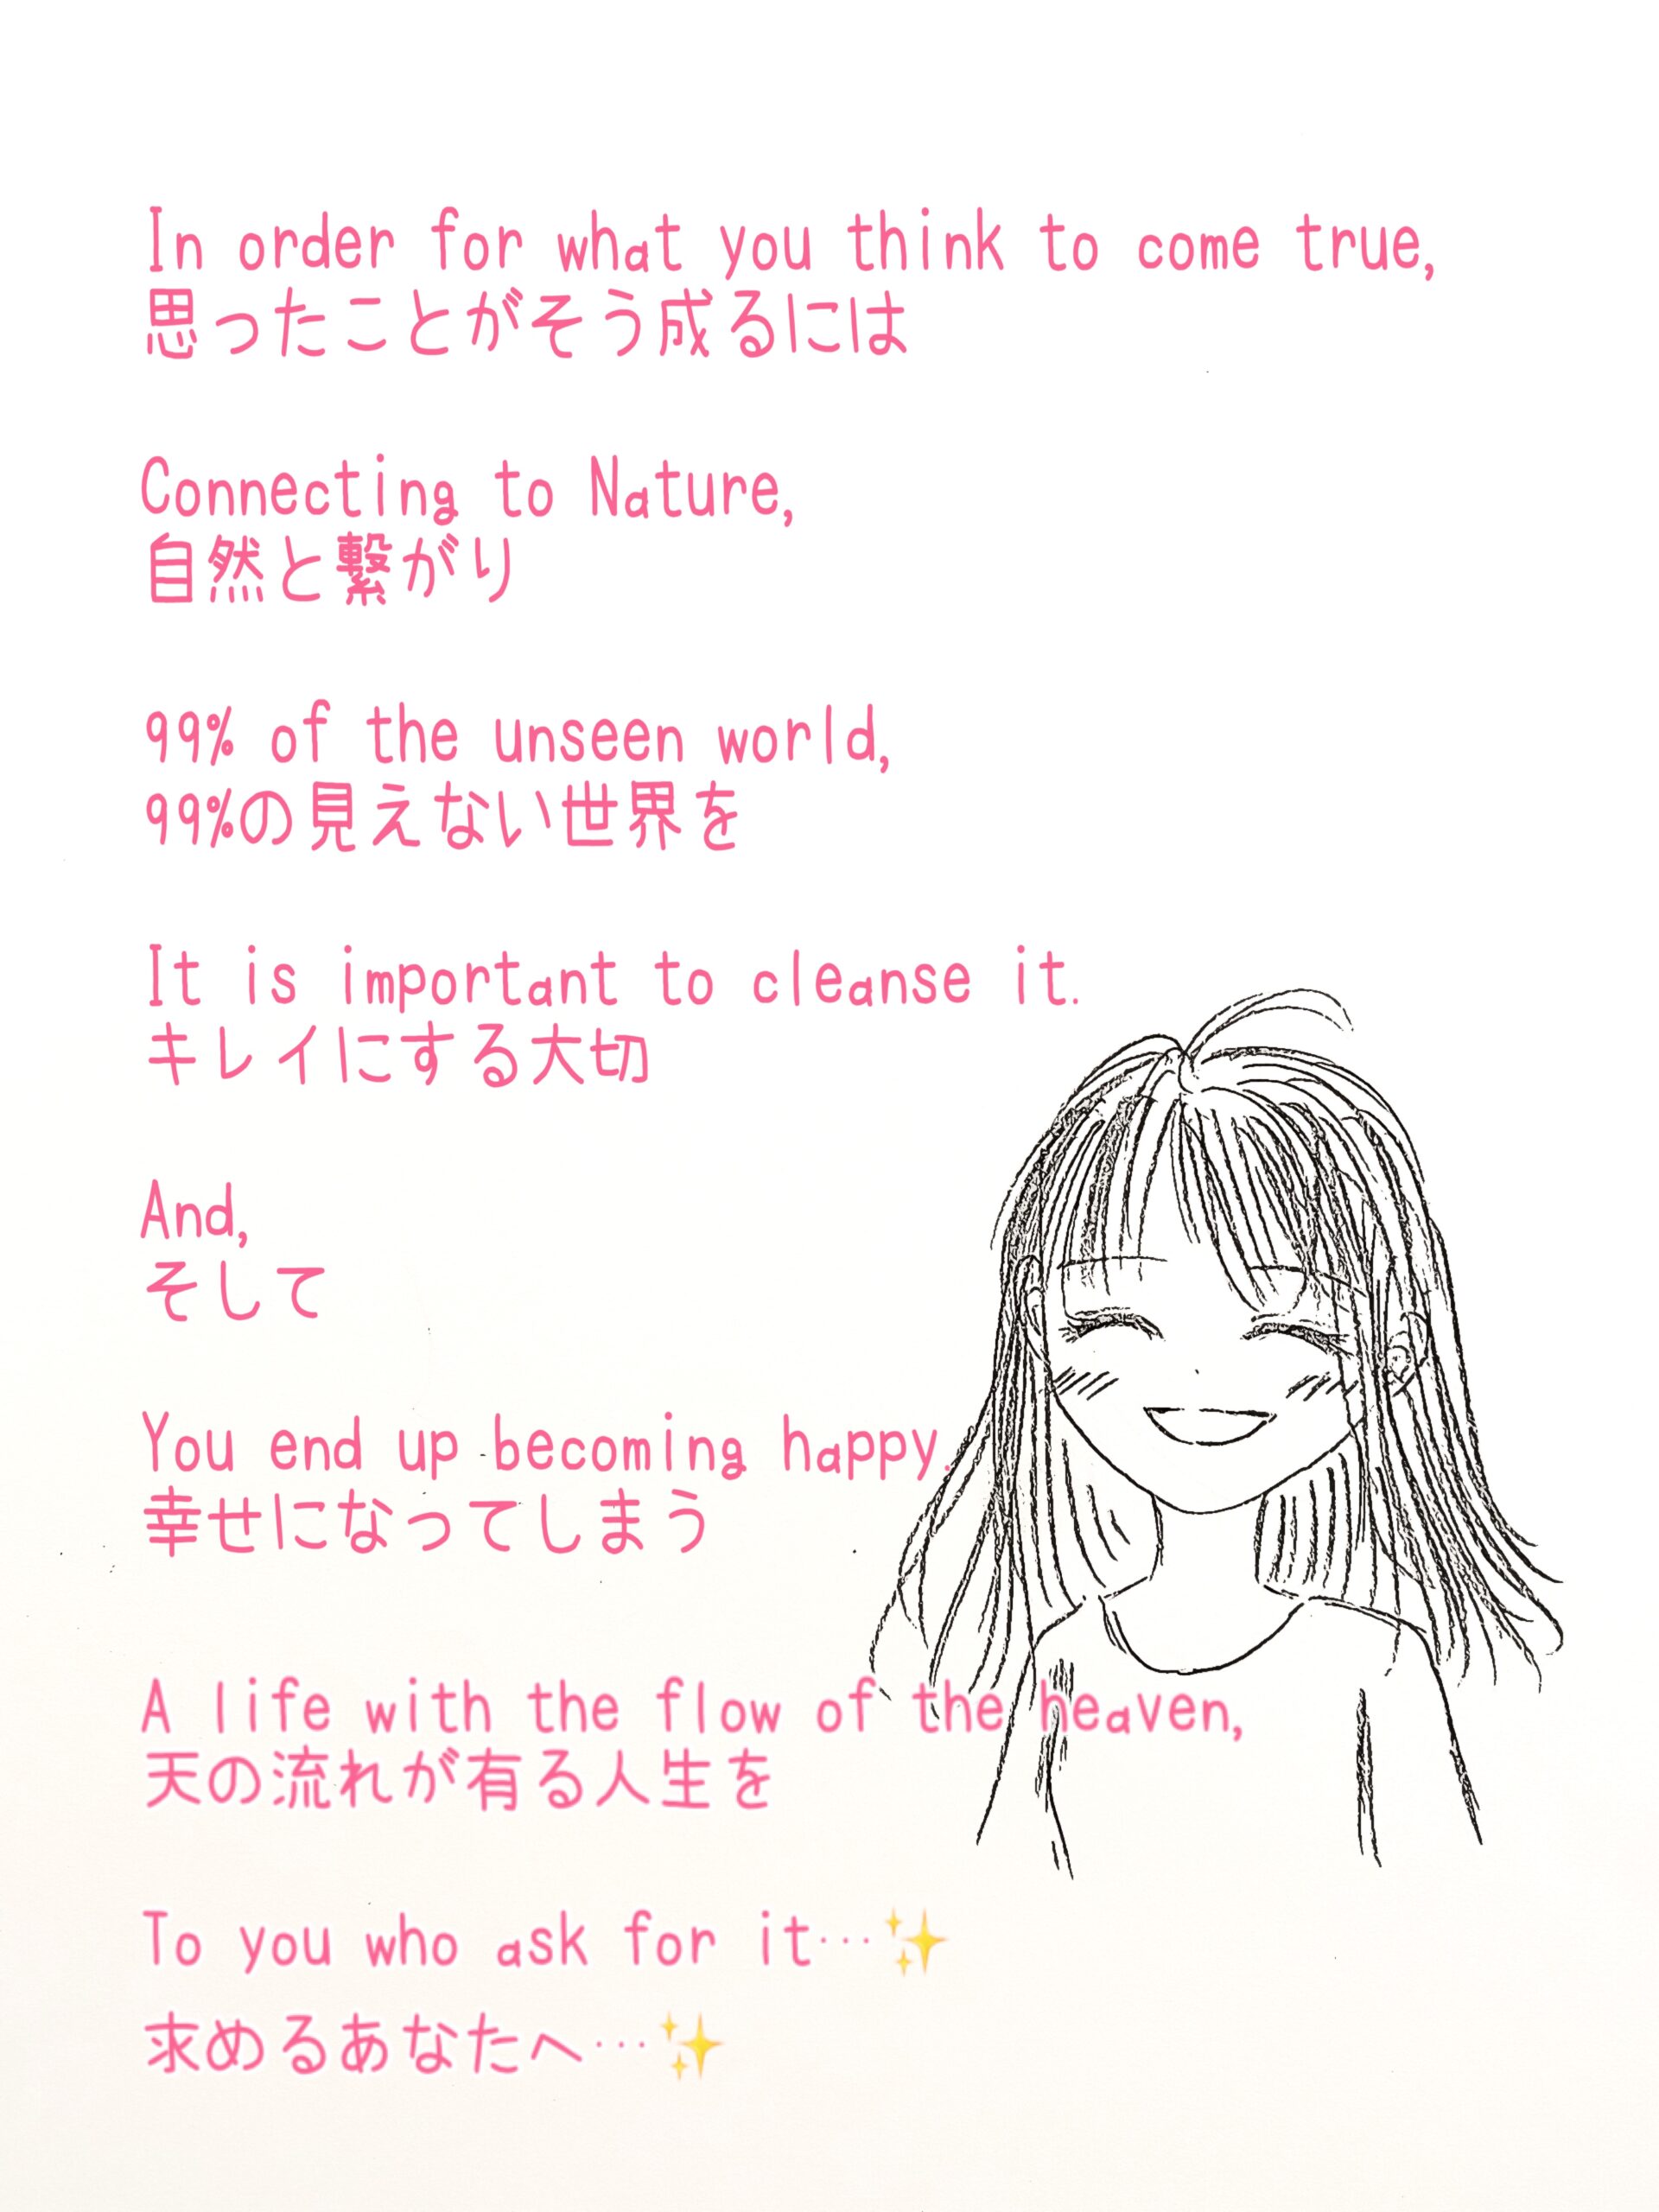 In order for what you think to come true,
思ったことがそう成るには
Connecting to Nature,
自然と繋がり
99% of the unseen world,
99%の見えない世界を
It is important to cleanse it.
キレイにする大切
And,
そして
You end up becoming happy.
幸せになってしまう
A life with the flow of the heaven,
天の流れが有る人生を
To you who ask for it…✨
求めるあなたへ…✨